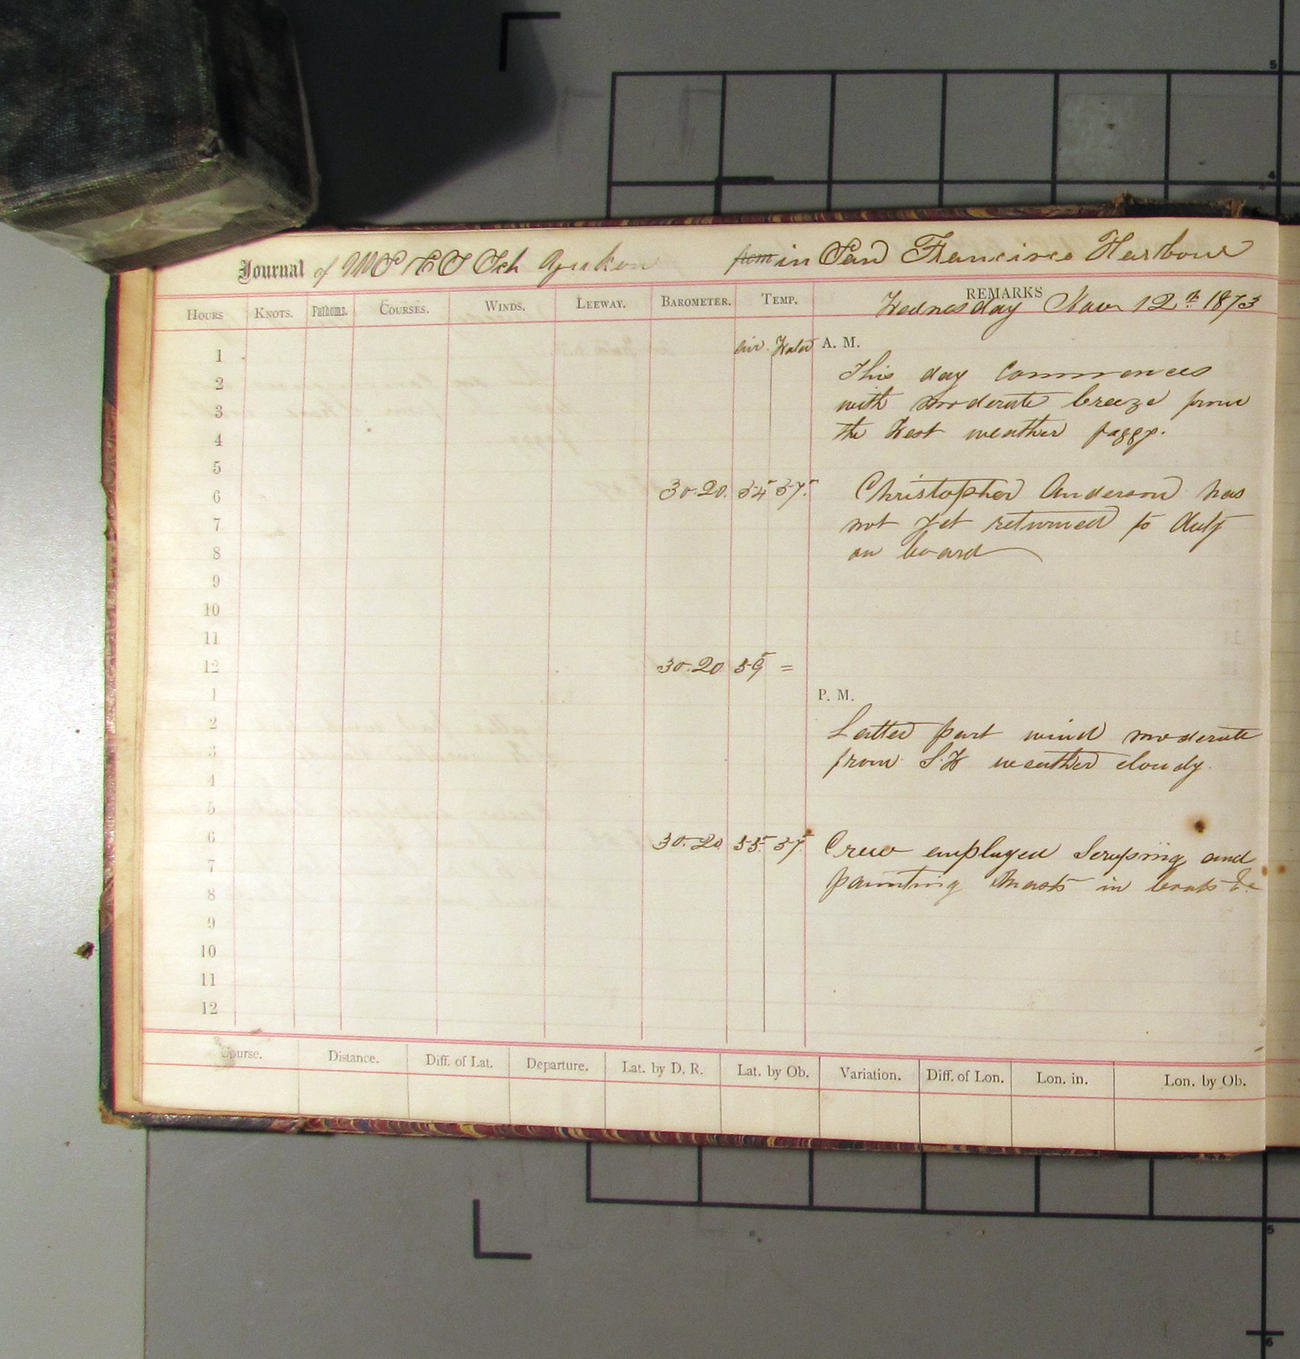 Journal of U.S.C.S. Sch Yukon from in San Francisco Harbour
HOURS KNOTS. Fathoms. COURSES. WINDS. LEEWAY. BAROMETER. TEMP. REMARKS
Wednesday Nov 12th 1873
air Water A. M.
1
2 This day commences
3 with moderate breeze from
4 the West weather foggy.
5
6 30.20. 54 57. Christopher Anderson has
7 not yet returned to duty
8 on board
9
10
11
12 30.20 59 =
1 P. M.
2 Latter part wind moderate
3 from S.W weather cloudy.
4
5
6 30.20 55. 57. Crew employed Scraping and
7 painting masts in boats &c
8
9
10
11
12
Course. Distance. Diff. of Lat. Departure. Lat. by D. R. Lat. by Ob. Variation. Diff. of Lon. Lon. in. Lon. by Ob.
5
4
5
6